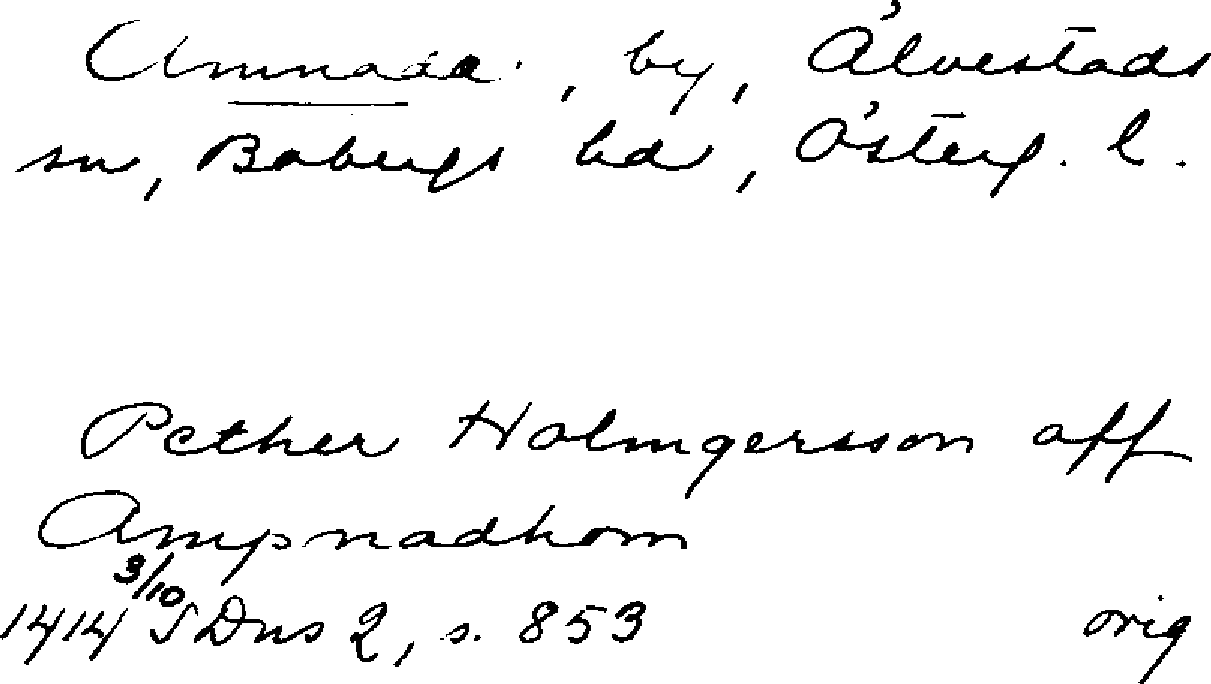 Amnada, by, Älvestads
sn, Bobergs hd, Österg. l.
Pether Holmgersson aff
Ampnadhom
1414 3/10 SDns 2, s. 853 orig